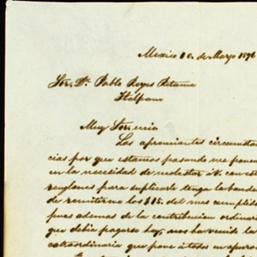 Mexico 10. de Marzo 189
Sor. Dn. Pablo Reyes Retana
Tlálpam
Muy Sor. mio
Las apremiantes circunstan
cias por que estamos pasando me ponen
en la necesidad de molestar á V. con estos
renglones para suplicarle tenga la bondad
de remitirme los $15. del mes cumplido
pues ademas de la contribucion ordinaria
que debia pagarse hoy, nos ha venido la
extraordinaria que pone á todos en apuros